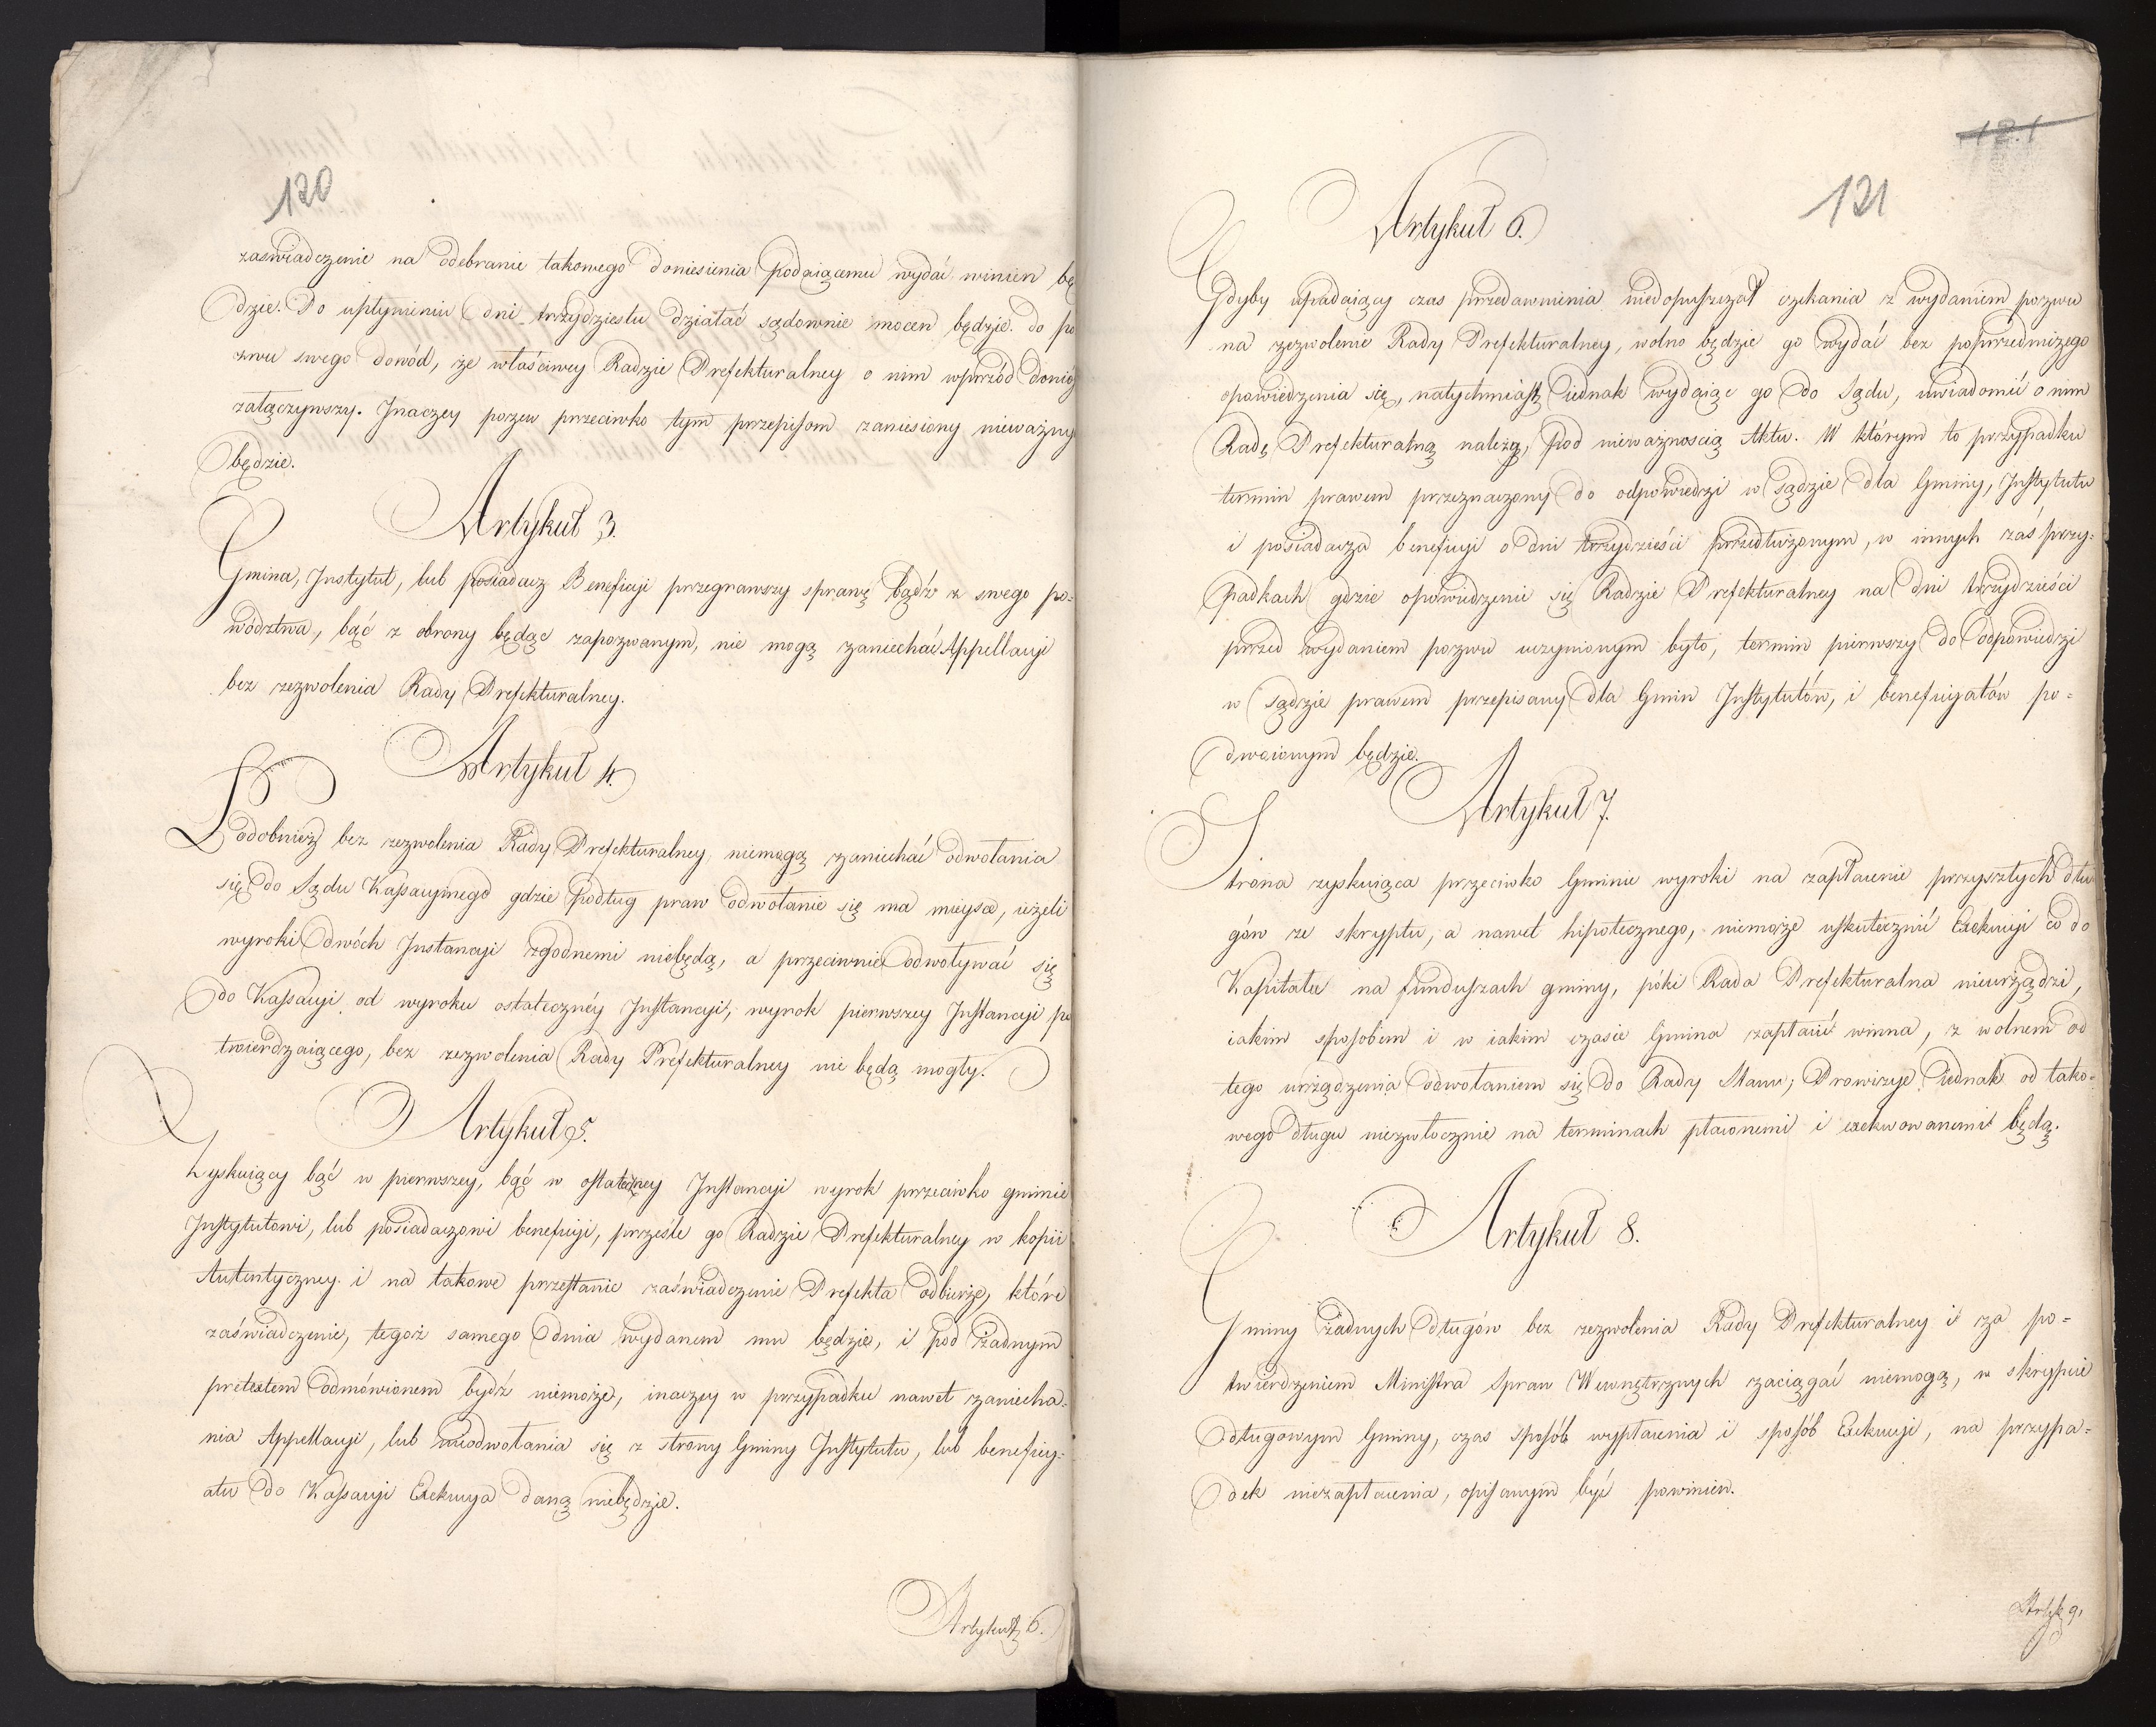 120
zaświadczenie na odebranie takowego doniesienia podaiącemu wydać winien bę
dzie. Po upłynieniu dni trzydziestu działać sądownie mocen będzie do po
zwu swego dowód, że właściwey Radzie Prefekturalney o nim wprzód donió
załączywszy. Inaczey pozew przeciwko tym przepisom zaniesiony nieważny
będzie.
Artykuł 3.
Gmina, Instytut, lub posiadacz Beneficyi przegrawszy sprawę bądź z swego po=
wództwa, bąć z obrony będąc zapozwanym, nie mogą zaniechać Appellacyi
bez zezwolenia Rady Prefekturalney.
Artykuł 4.
Podobnież bez zezwolenia Rady Prefekturalney, niemogą zaniechać odwołania
się do Sądu Kassacyinego gdzie podług praw odwołanie się ma mieysce, ieżeli
wyroki dwóch Instancyi zgodnemi niebędą, a przeciwnie odwoływać się
do Kassacyi od wyroku ostateczney Instancyi, wyrok pierwszey Instancyi po
twierdzaiącego, bez zezwolenia Rady Prefekturalney nie będą mogły.
Artykuł 5.
Zyskuiący bąć w pierwszey, bąć w ostateczney Instancyi wyrok przeciwko gminie
Instytutowi, lub posiadaczowi beneficyi, prześle go Radzie Prefekturalney w kopii
Autentyczney i na takowe przesłanie zaświadczenie Prefekta odbierze, które
zaświadczenie, tegoż samego dnia wydanem mu będzie, i pod żadnym
pretextem odmówionem bydź niemoże, inaczey w przypadku nawet zaniecha=
nia Appellacyi, lub nieodwołania się z strony Gminy Instytutu, lub beneficy=
atu do Kassacyi Exekucya daną niebędzie.
Artykuł 6.
121
121
Artykuł 6.
Gdyby upadaiący czas przedawnienia niedopuszczał czekania z wydaniem pozwu
na zezwolenie Rady Prefekturalney, wolno będzie go wydać bez poprzedniczego
opowiedzenia się, natychmiast iednak wydaiąc go do Sądu, uwiadomić o nim
Radę Prefekturalną należy, pod nieważnością Aktu. W którym to przypadku
termin prawem przeznaczony do odpowiedzi w sądzie dla Gminy, Instytutu
i posiadacza beneficyi o dni trzydzieści przedłużonym, w innych zaś przy=
padkach gdzie opowiedzenie się Radzie Prefekturalney na dni trzydzieści
przed wydaniem pozwu uczynionym było, termin pierwszy do odpowiedzi
w sądzie prawem przepisany dla Gmin Instytutów, i beneficyatów po=
dwoionym będzie.
Artykuł 7.
Strona zyskuiąca przeciwko Gminie wyroki na zapłacenie przyszłych dłu
gów ze skryptu, a nawet hipotecznego, niemoże uskutecznić Exekucyi co do
Kapitału na funduszach gminy, póki Rada Prefekturalna nieurządzi,
iakim sposobem i w iakim czasie Gmina zapłacić winna, z wolnem od
tego urządzenia odwołaniem się do Rady Stanu; Prowizye iednak od tako=
wego długu niezwłocznie na terminach płaconemi i exekwowanemi będą.
Artykuł 8.
Gminy żadnych długów bez zezwolenia Rady Prefekturalney i za po=
twierdzeniem Ministra Spraw Wewnętrznych zaciągać niemogą, w skrypcie
długowym Gminy, czas sposób wypłacenia i sposób Exekucyi, na przypa=
dek niezapłacenia, opisanym być powinien.
Artyk 9.